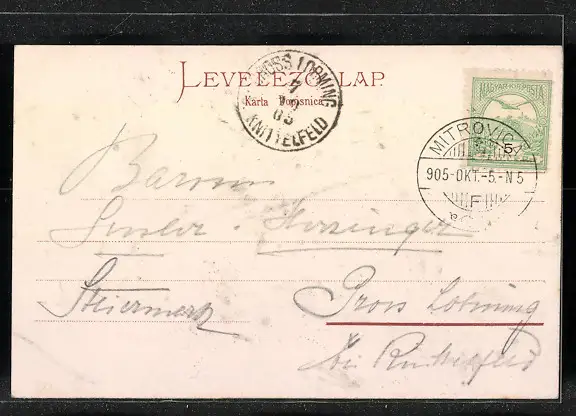 LEVELEZŐ-LAP.
Karta Dopisnica
GROSS LOBMING
7
10
05
KNITTELFELD
MAGYAR KIR. POSTA
5
MITROVICA
905-OKT.-5.-N5
F
Baronin
Steiermark
Gross Lobming
bei Knittelfeld